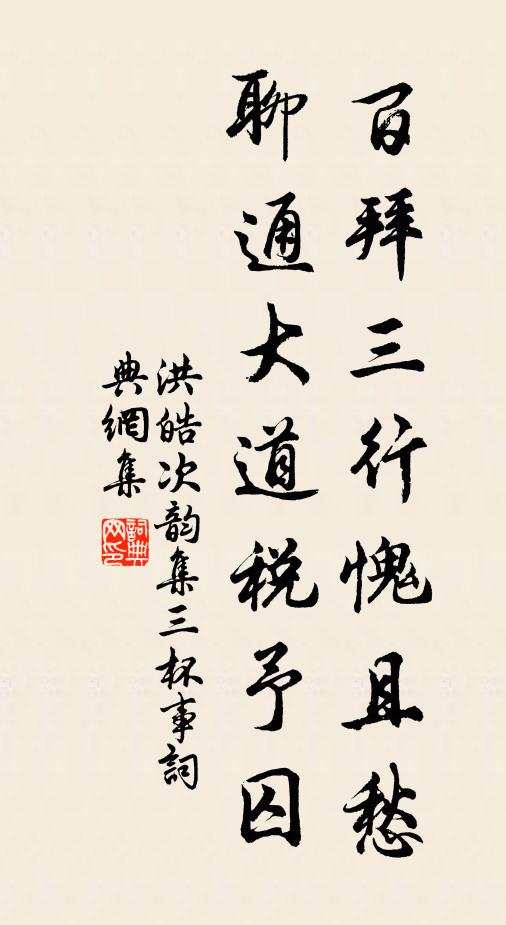 百拜三行愧且愁
聊通大道税予囚
洪皓次韵集三杯事詞
典網集
詞典网印